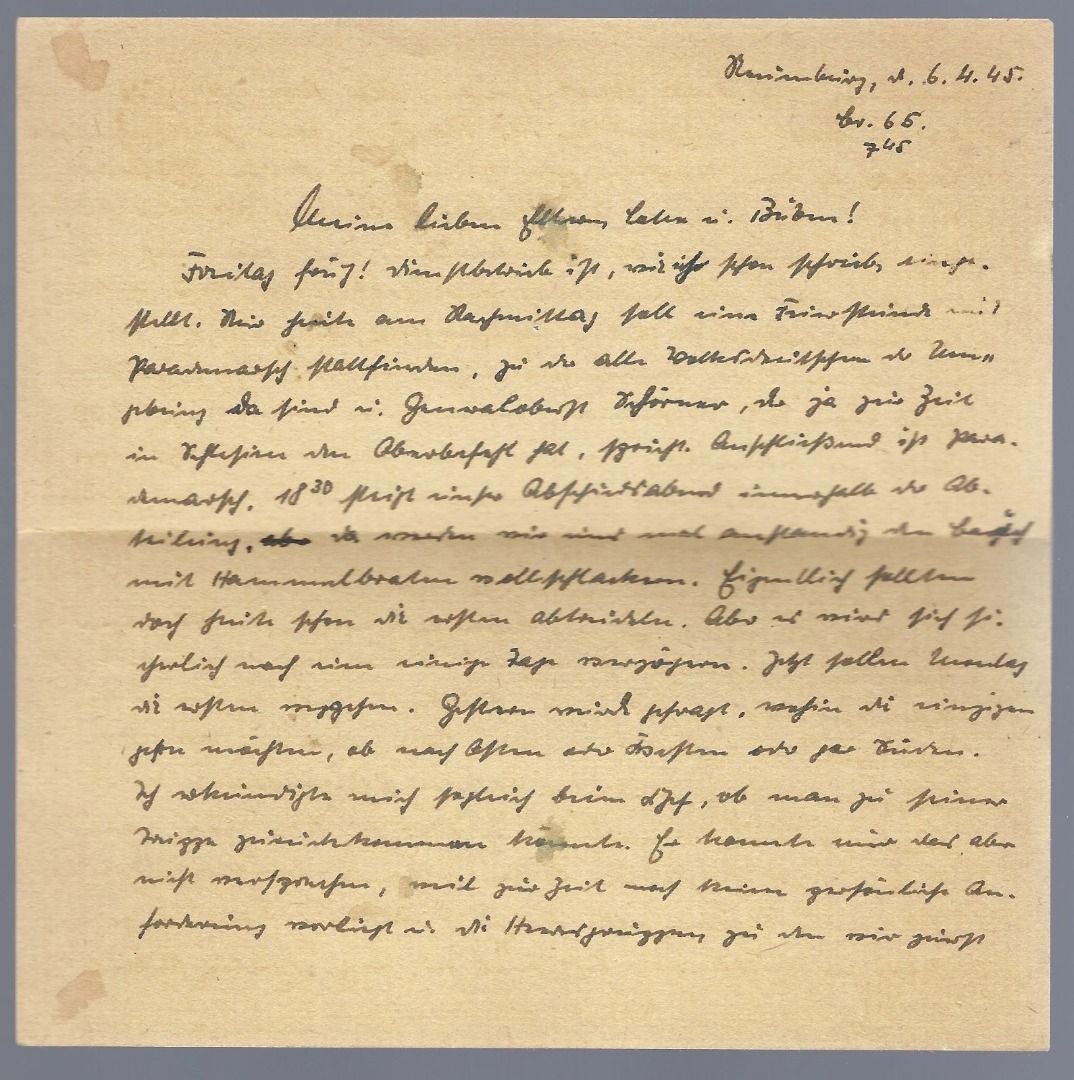 Naumburg, d. 6.4.45.
Br. 65.
745
Meine lieben Eltern, u. Buben!
Freitag früh! Dienstbetrieb ist, wie ich schon schrieb, einge-
stellt. Nur heute am Nachmittag soll eine Feierstunde mit
Parademarsch stattfinden, zu der alle Volksdeutschen der Um-
gebung da sind u. Generaloberst Schörner, der ja zur Zeit
in Schlesien den Oberbefehl hat, spricht. Anschließend ist Para-
demarsch. 18 30 steigt unser Abschiedsabend innerhalb der Ab-
teilung, da werden wir uns mal anständig den Bauch
mit Hammelbraten vollschlackern. Eigentlich sollten
doch heute schon die ersten abtrudeln. Aber es wird sich si-
cherlich noch um einige Tage verzögern. Jetzt sollen Montag
die ersten weggehen. Gestern wurde gefragt, wohin die einzigen
gehn möchten, ob nach Osten oder Westen oder gar Süden.
Ich erkundigte mich sogleich beim Chef, ob man zu seiner
Truppe zurückkommen könnte. Er konnte mir das aber
nicht versprechen, weil zur Zeit noch keine persönliche An-
forderung vorliegt u. die Heeresgruppen, zu den wir zuerst